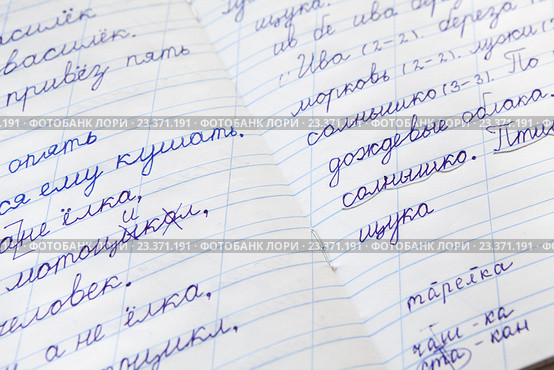 василёк
василёк.
привёз пять
опять
ся ему кушать.
а не ёлка,
мотоцикл,
человек.
и а не ёлка,
щука.
ив бе ива
Ива (2-2). береза
морковь (2-2). лужи
солнышко (3-3). По
дождевые облака.
солнышко. Птиц
щука
тарелка
чаш-ка
ста-кан
© ФОТОБАНК ЛОРИ - 23.371.191 - ФОТОБАНК ЛОРИ - 23.371.191 - ФОТОБАНК ЛОРИ - 23.371.191
© ФОТОБАНК ЛОРИ - 23.371.191 - ФОТОБАНК ЛОРИ - 23.371.191 - ФОТОБАНК ЛОРИ - 23.371.191